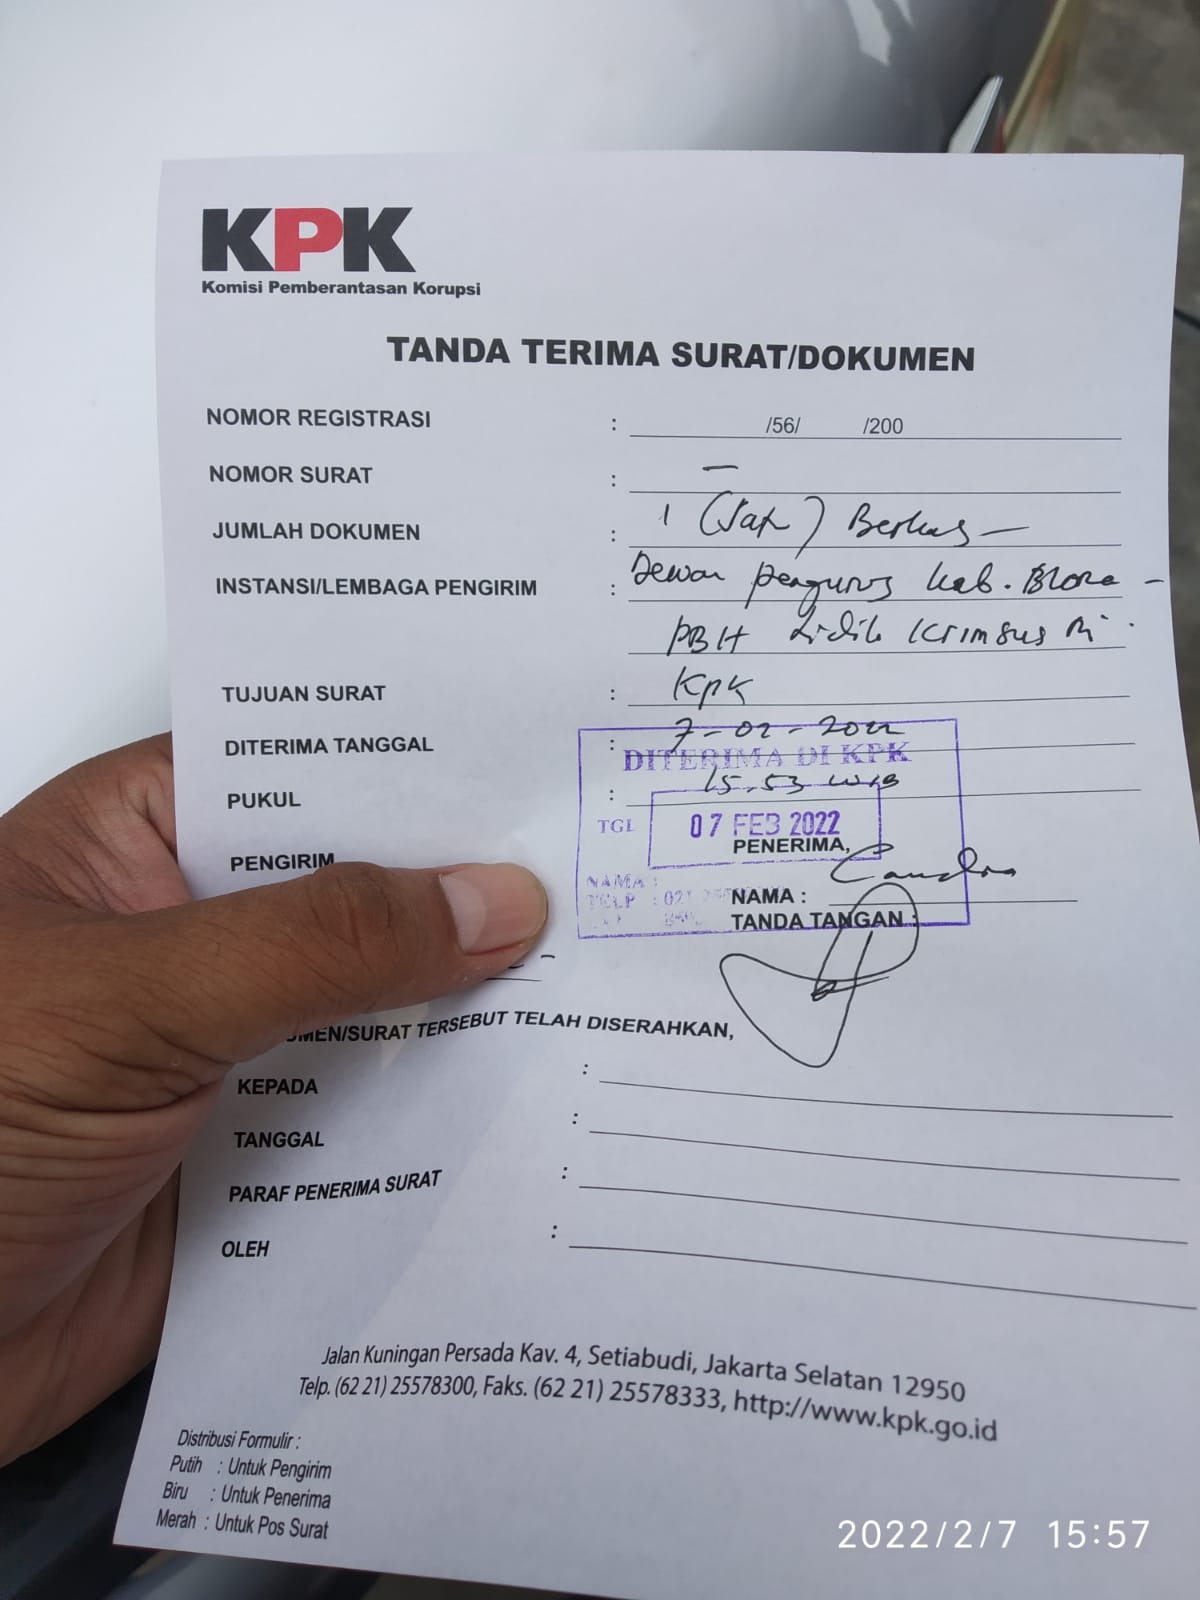 KPK
Komisi Pemberantasan Korupsi
TANDA TERIMA SURAT/DOKUMEN
NOMOR REGISTRASI : /56/ /200
NOMOR SURAT : —
JUMLAH DOKUMEN : 1 (Satu) Berkas —
INSTANSI/LEMBAGA PENGIRIM : Dewan Pengurus Kab. Blora -
PBH Lidik Krimsus RI.
TUJUAN SURAT : KPK
DITERIMA TANGGAL : 7-02-2022
DITERIMA DI KPK
PUKUL : 15.53 WIB
TGL 07 FEB 2022
PENERIMA,
PENGIRIM
NAMA :
TELP : 021
NAMA : Candra
TANDA TANGAN :
UMEN/SURAT TERSEBUT TELAH DISERAHKAN,
KEPADA :
TANGGAL :
PARAF PENERIMA SURAT :
OLEH :
Jalan Kuningan Persada Kav. 4, Setiabudi, Jakarta Selatan 12950
Telp. (62 21) 25578300, Faks. (62 21) 25578333, http://www.kpk.go.id
Distribusi Formulir :
Putih : Untuk Pengirim
Biru : Untuk Penerima
Merah : Untuk Pos Surat
2022/2/7 15:57